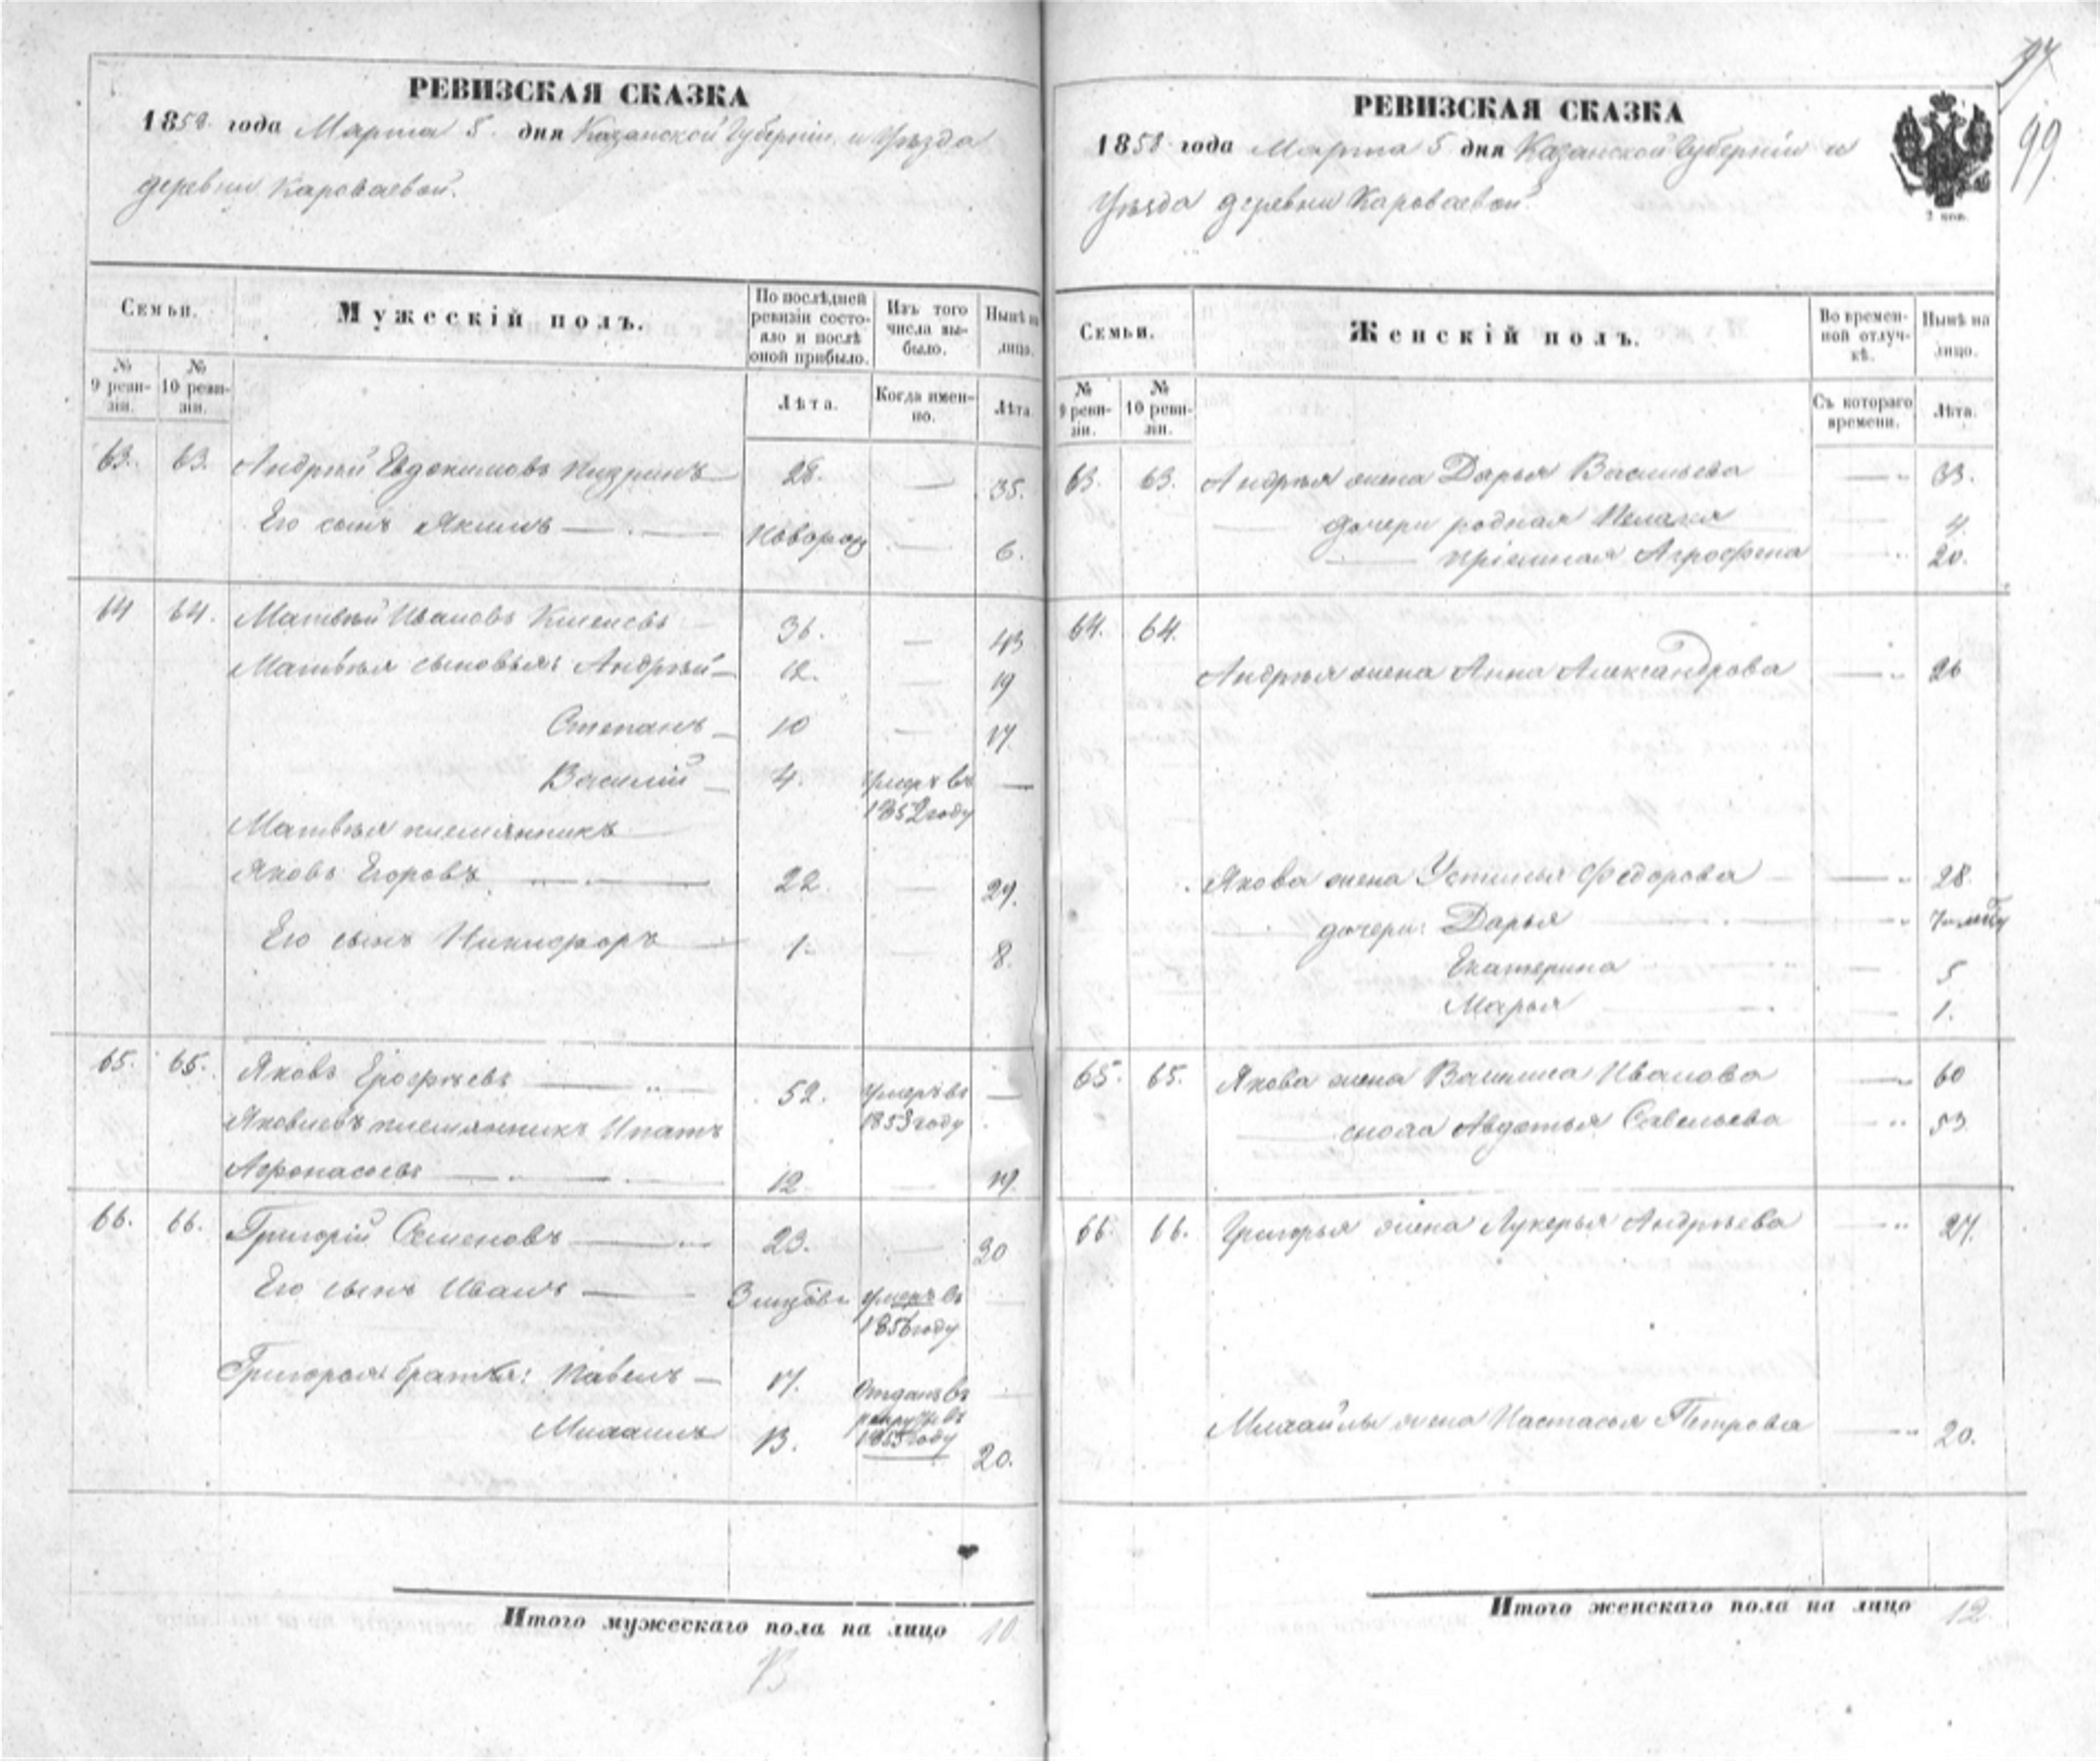 РЕВИЗСКАЯ СКАЗКА
1858 года Марта 5 дня Казанской Губерніи и Уѣзда
деревни Караваевой.
Семьи.
Мужескій полъ.
По послѣдней ревизіи состояло и послѣ оной прибыло.
Изъ того числа выбыло.
Нынѣ на лицо.
№ 9 ревизіи.
№ 10 ревизіи.
Лѣта.
Когда именно.
Лѣта.
63. 63. Андрей Евдокимовъ 28. — 35.
Его сынъ Якимъ — новорож — 6.
64 64. Матвѣй Ивановъ 36. — 43
Матвѣя сыновья: Андрей — 12. — 19
Степанъ — 10 — 17
Василій — 4. умеръ въ 1852 году —
Матвѣя племянникъ
Яковъ Егоровъ — 22. — 29.
Его сынъ Никифоръ — 1. — 8.
65. 65. Яковъ Ерофѣевъ — 52. умеръ въ 1853 году —
Яковлевъ племянникъ Ипатъ
Афонасьевъ — 12 — 19.
66. 66. Григорій Семеновъ — 23. — 30
Его сынъ Иванъ — 3 умеръ въ 1856 году —
Григорья братья: Павелъ — 17. Отданъ въ рекруты въ 1855 году —
Михаилъ 13. 20.
Итого мужескаго пола на лицо 10.
97
99
РЕВИЗСКАЯ СКАЗКА
1858 года Марта 5 дня Казанской Губерніи и
Уѣзда деревни Караваевой.
2 коп.
Семьи.
Женскій полъ.
Во временной отлучкѣ.
Нынѣ на лицо.
№ 9 ревизіи.
№ 10 ревизіи.
Съ котораго времени.
Лѣта.
63. 63. Андрея жена Дарья Васильева — 33.
дочери родная Пелагея 4.
— пріемная Агрофена 20.
64. 64.
Андрея жена Анна Александрова — 26
Якова жена Устинья Федорова — 28.
дочери: Дарья — 7
Екатерина — 5
Марья — 1.
65. 65. Якова жена Василиса Иванова — 60
сноха Авдотья Савельева — 53
66. 66. Григорья жена Лукерья Андрѣева — 27.
Михайлы жена Настасья Петрова — 20.
Итого женскаго пола на лицо 12.